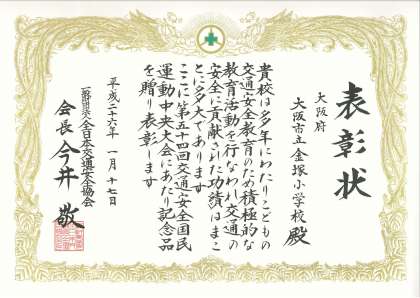 表彰状
大阪府
大阪市立金塚小学校殿
貴校は多年にわたりこどもの
交通安全教育のため積極的な
教育活動を行なわれ交通の
安全に貢献された功績はまこ
とに多大であります
ここに第五十四回交通安全国民
運動中央大会にあたり記念品
を贈り表彰します
平成二十六年一月十七日
一般財団法人全日本交通安全協会
会長 今井 敬